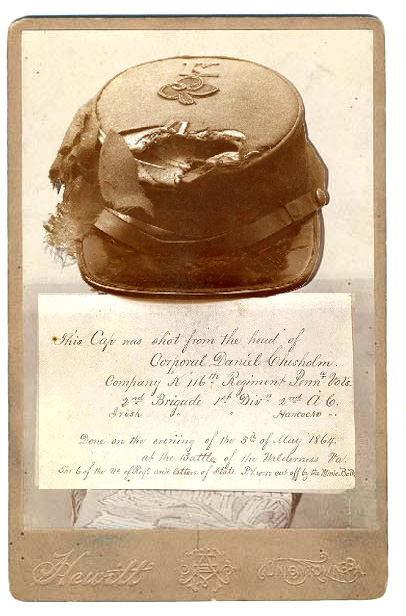 K
This Cap was shot from the head of
Corporal Daniel Chisholm.
Company K 116th Regiment Penna. Vols.
2nd Brigade 1st Divn. 2nd A. C.
Irish " " Hancocks "
Done on the evening of the 5th of May 1864.
at the Battle of the Wilderness Va.
The 6 of the No of Regt. and letters of State P.V. were cut off by the Minie Ball
Hewitt
UNIONTOWN, PA.